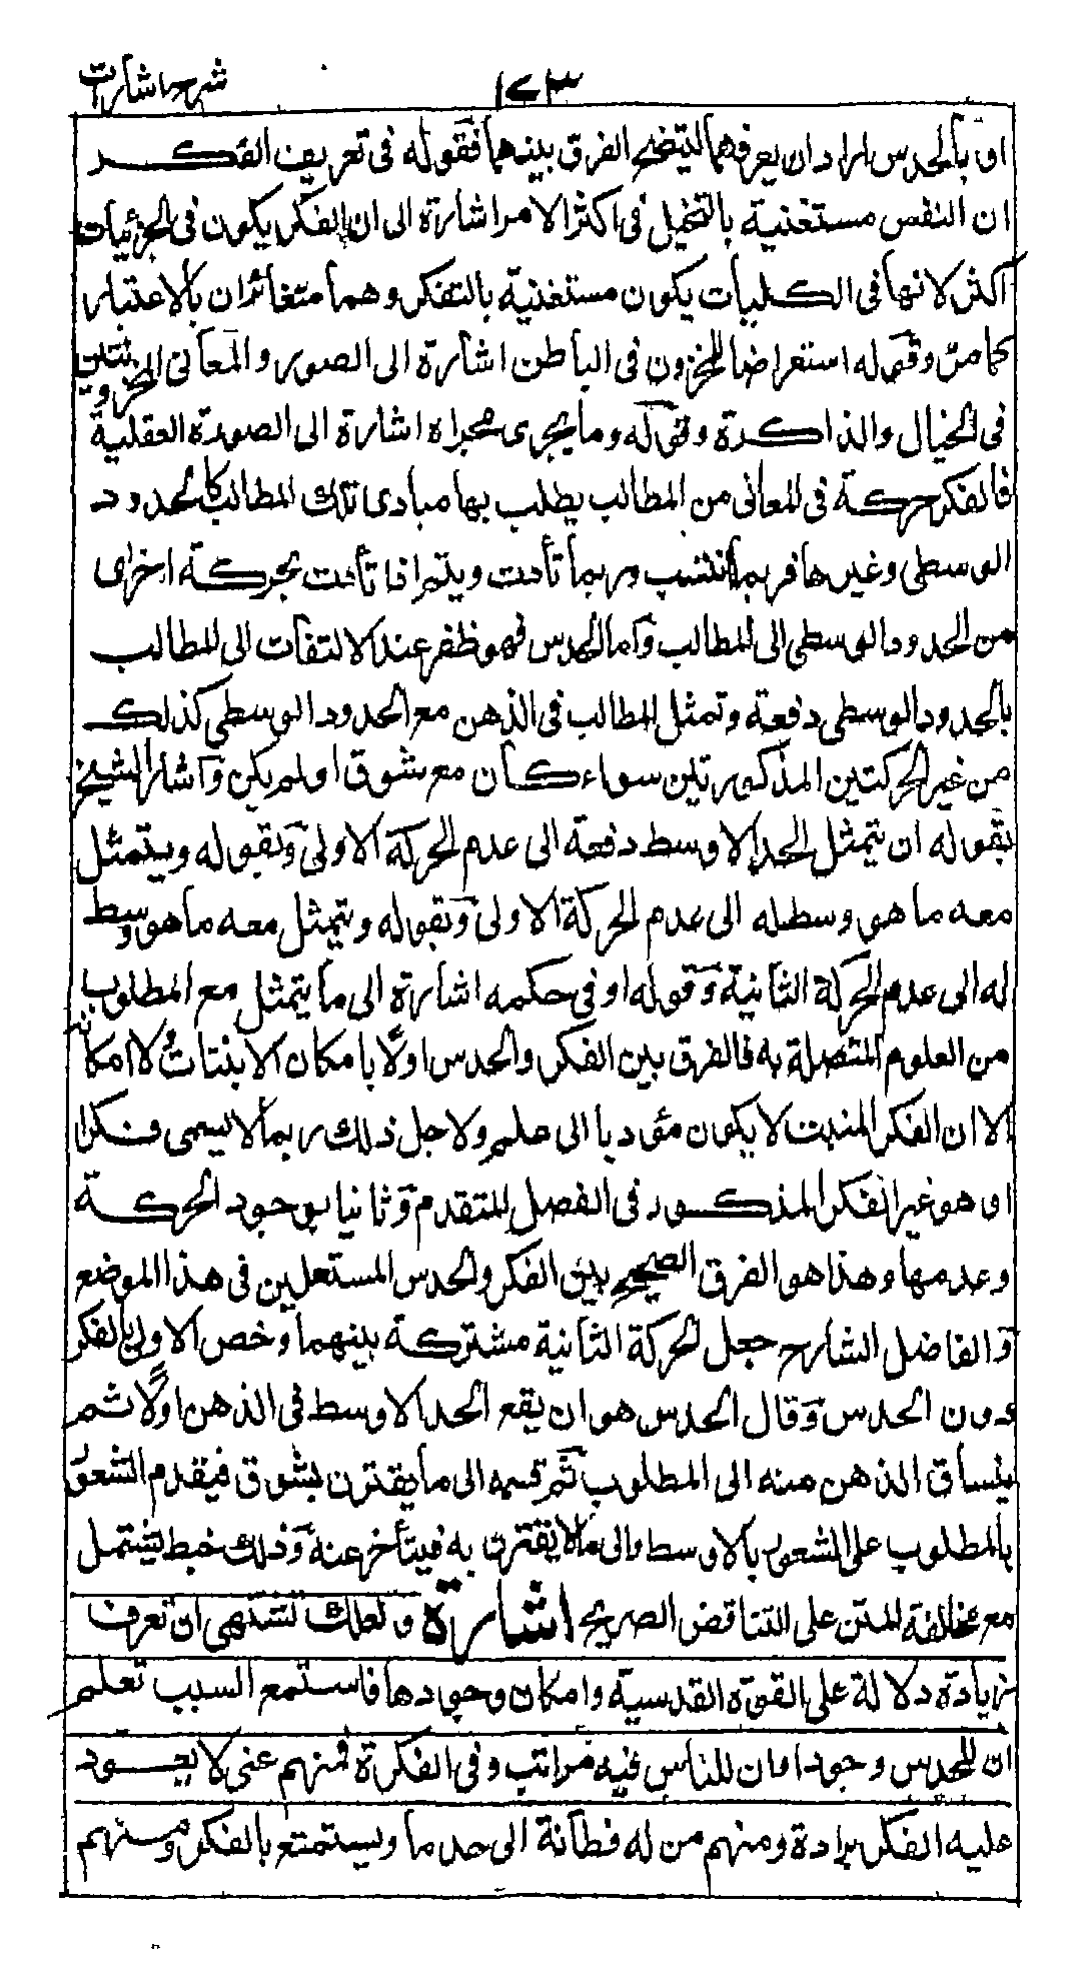 شرح اشارات
١٤٣
او بالحدس اراد ان يعرفهما ليتضح الفرق بينهما فقوله فى تعريف الفكر
ان النفس مستغنية بالتخيل فى اكثر الامر اشارة الى ان الفكر يكون فى الجزئيات
اكثر لانها فى الكليات يكون مستغنية بالتفكر وهما متغائران بالاعتبار
كما مر وقوله استعراضا للمخزون فى الباطن اشارة الى الصور والمعانى المخزونتين
فى الخيال والذاكرة وقوله وما يجرى مجراه اشارة الى الصورة العقلية
فالفكر حركة فى المعانى من المطالب يطلب بها مبادى تلك المطالب كالحدود
الوسطى وغيرها فربما انبتت وربما تأدت ويتم اذا تأدت بحركة اخرى
من الحدود الوسطى الى المطالب واما الحدس فهو ظفر عند الالتفات الى المطالب
بالحدود الوسطى دفعة وتمثل المطالب فى الذهن مع الحدود الوسطى كذلك
من غير الحركتين المذكورتين سواء كان مع شوق او لم يكن واشار الشيخ
بقوله ان يتمثل الحد الاوسط دفعة الى عدم الحركة الاولى وبقوله ويتمثل
معه ما هو وسط له الى عدم الحركة الاولى وبقوله ويتمثل معه ما هو وسط
له الى عدم الحركة الثانية وقوله او فى حكمه اشارة الى ما يتمثل مع المطلوب
من العلوم المتصلة به فالفرق بين الفكر والحدس اولا بامكان الانبتات ولا امكانه
الا ان الفكر المنبت لا يكون مؤديا الى علم ولاجل ذلك ربما لا يسمى فكرا
او هو غير الفكر المذكور فى الفصل المتقدم وثانيا بوجود الحركة
وعدمها وهذا هو الفرق الصحيح بين الفكر والحدس المستعملين فى هذا الموضع
والفاضل الشارح جعل الحركة الثانية مشتركة بينهما وخص الاولى بالفكر
دون الحدس وقال الحدس هو ان يقع الحد الاوسط فى الذهن اولا ثم
ينساق الذهن منه الى المطلوب ثم قسمه الى ما يقترن بشوق فيقدم الشعور
بالمطلوب على الشعور بالاوسط والى ما لا يقترن به فيتأخر عنه وذلك خبط يشتمل
مع مخالفة المتن على التناقض الصريح اشارة ولعلك تشتهى ان تعرف
زيادة دلالة على القوة القدسية وامكان وجودها فاستمع الست تعلم
ان للحدس وجودا وان للناس فيه مراتب وفى الفكرة فمنهم غبى لا يعود
عليه الفكر برادة ومنهم من له فطانة الى حد ما ويستمتع بالفكر ومنهم